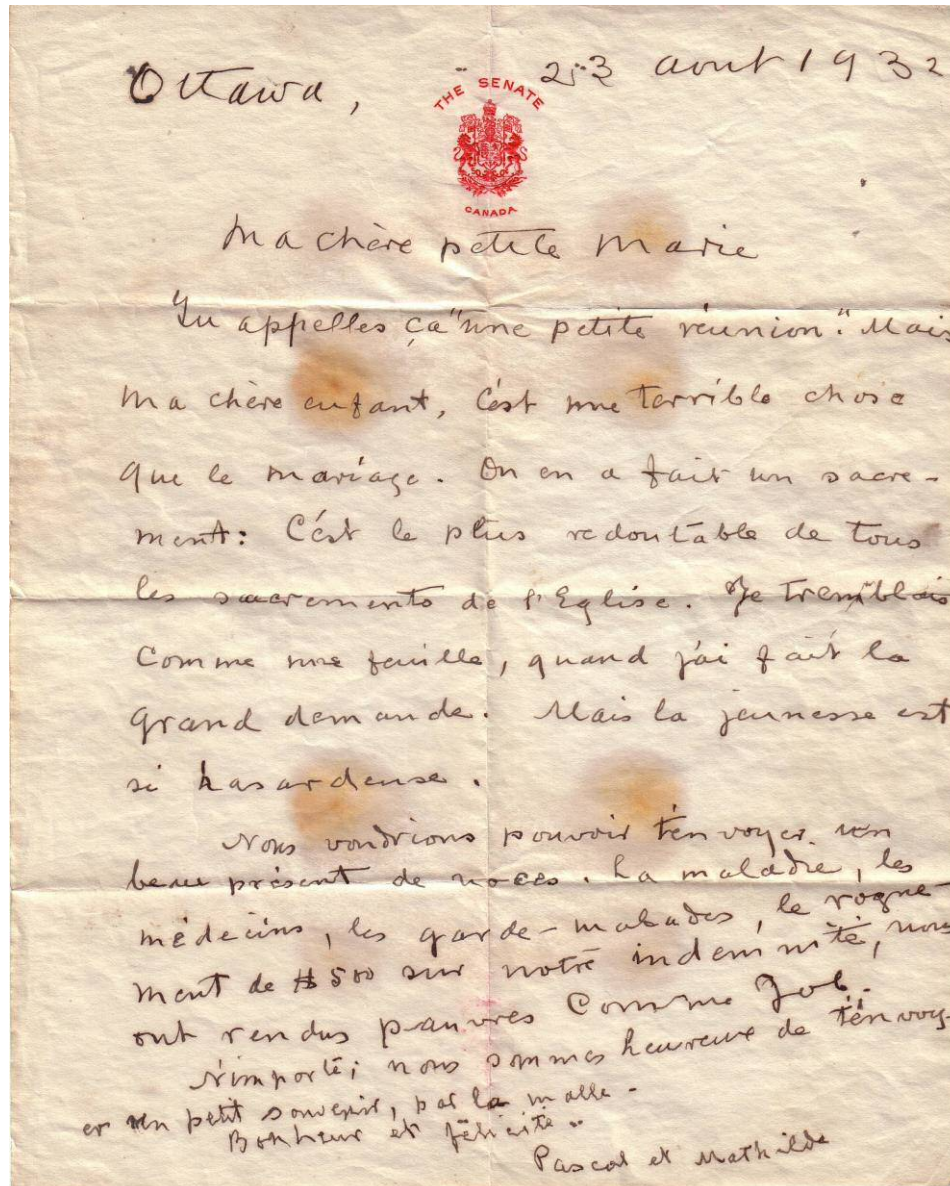 Ottawa, 23 aout 1932
THE SENATE
CANADA
Ma chère petite Marie
Tu appelles ça "une petite réunion". Mais
ma chère enfant, c'est une terrible chose
que le mariage. On en a fait un sacre-
ment: C'est le plus redoutable de tous
les sacrements de l'Eglise. Je tremblais
comme une feuille, quand j'ai fait la
grand demande. Mais la jeunesse est
si hasardeuse.
Nous voudrions pouvoir t'envoyer un
beau présent de noces. La maladie, les
médecins, les garde-malades, le rogne-
ment de $500 sur notre indemnité, nous
ont rendus pauvres comme Job.
N'importe; nous sommes heureux de t'envoy-
er un petit souvenir, par la malle -
Bonheur et félicité.
Pascal et Mathilde